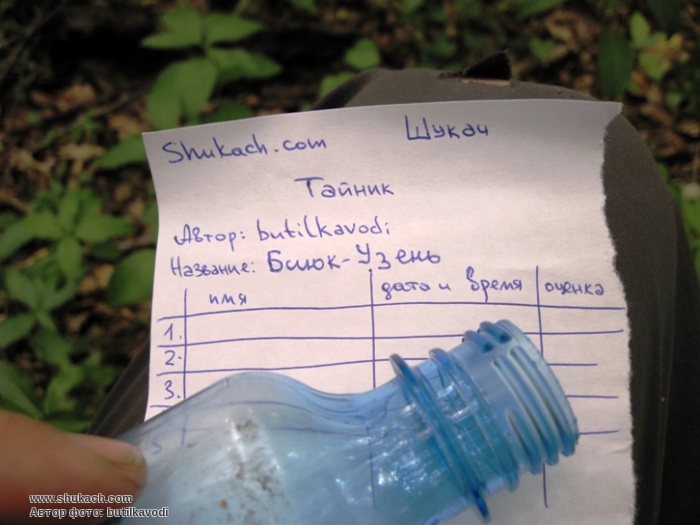 Shukach.com Шукач
Тайник
Автор: butilkavodi
Название: Биюк-Узень
имя дата и время оценка
1.
2.
3.
5
www.shukach.com
Автор фото: butilkavodi